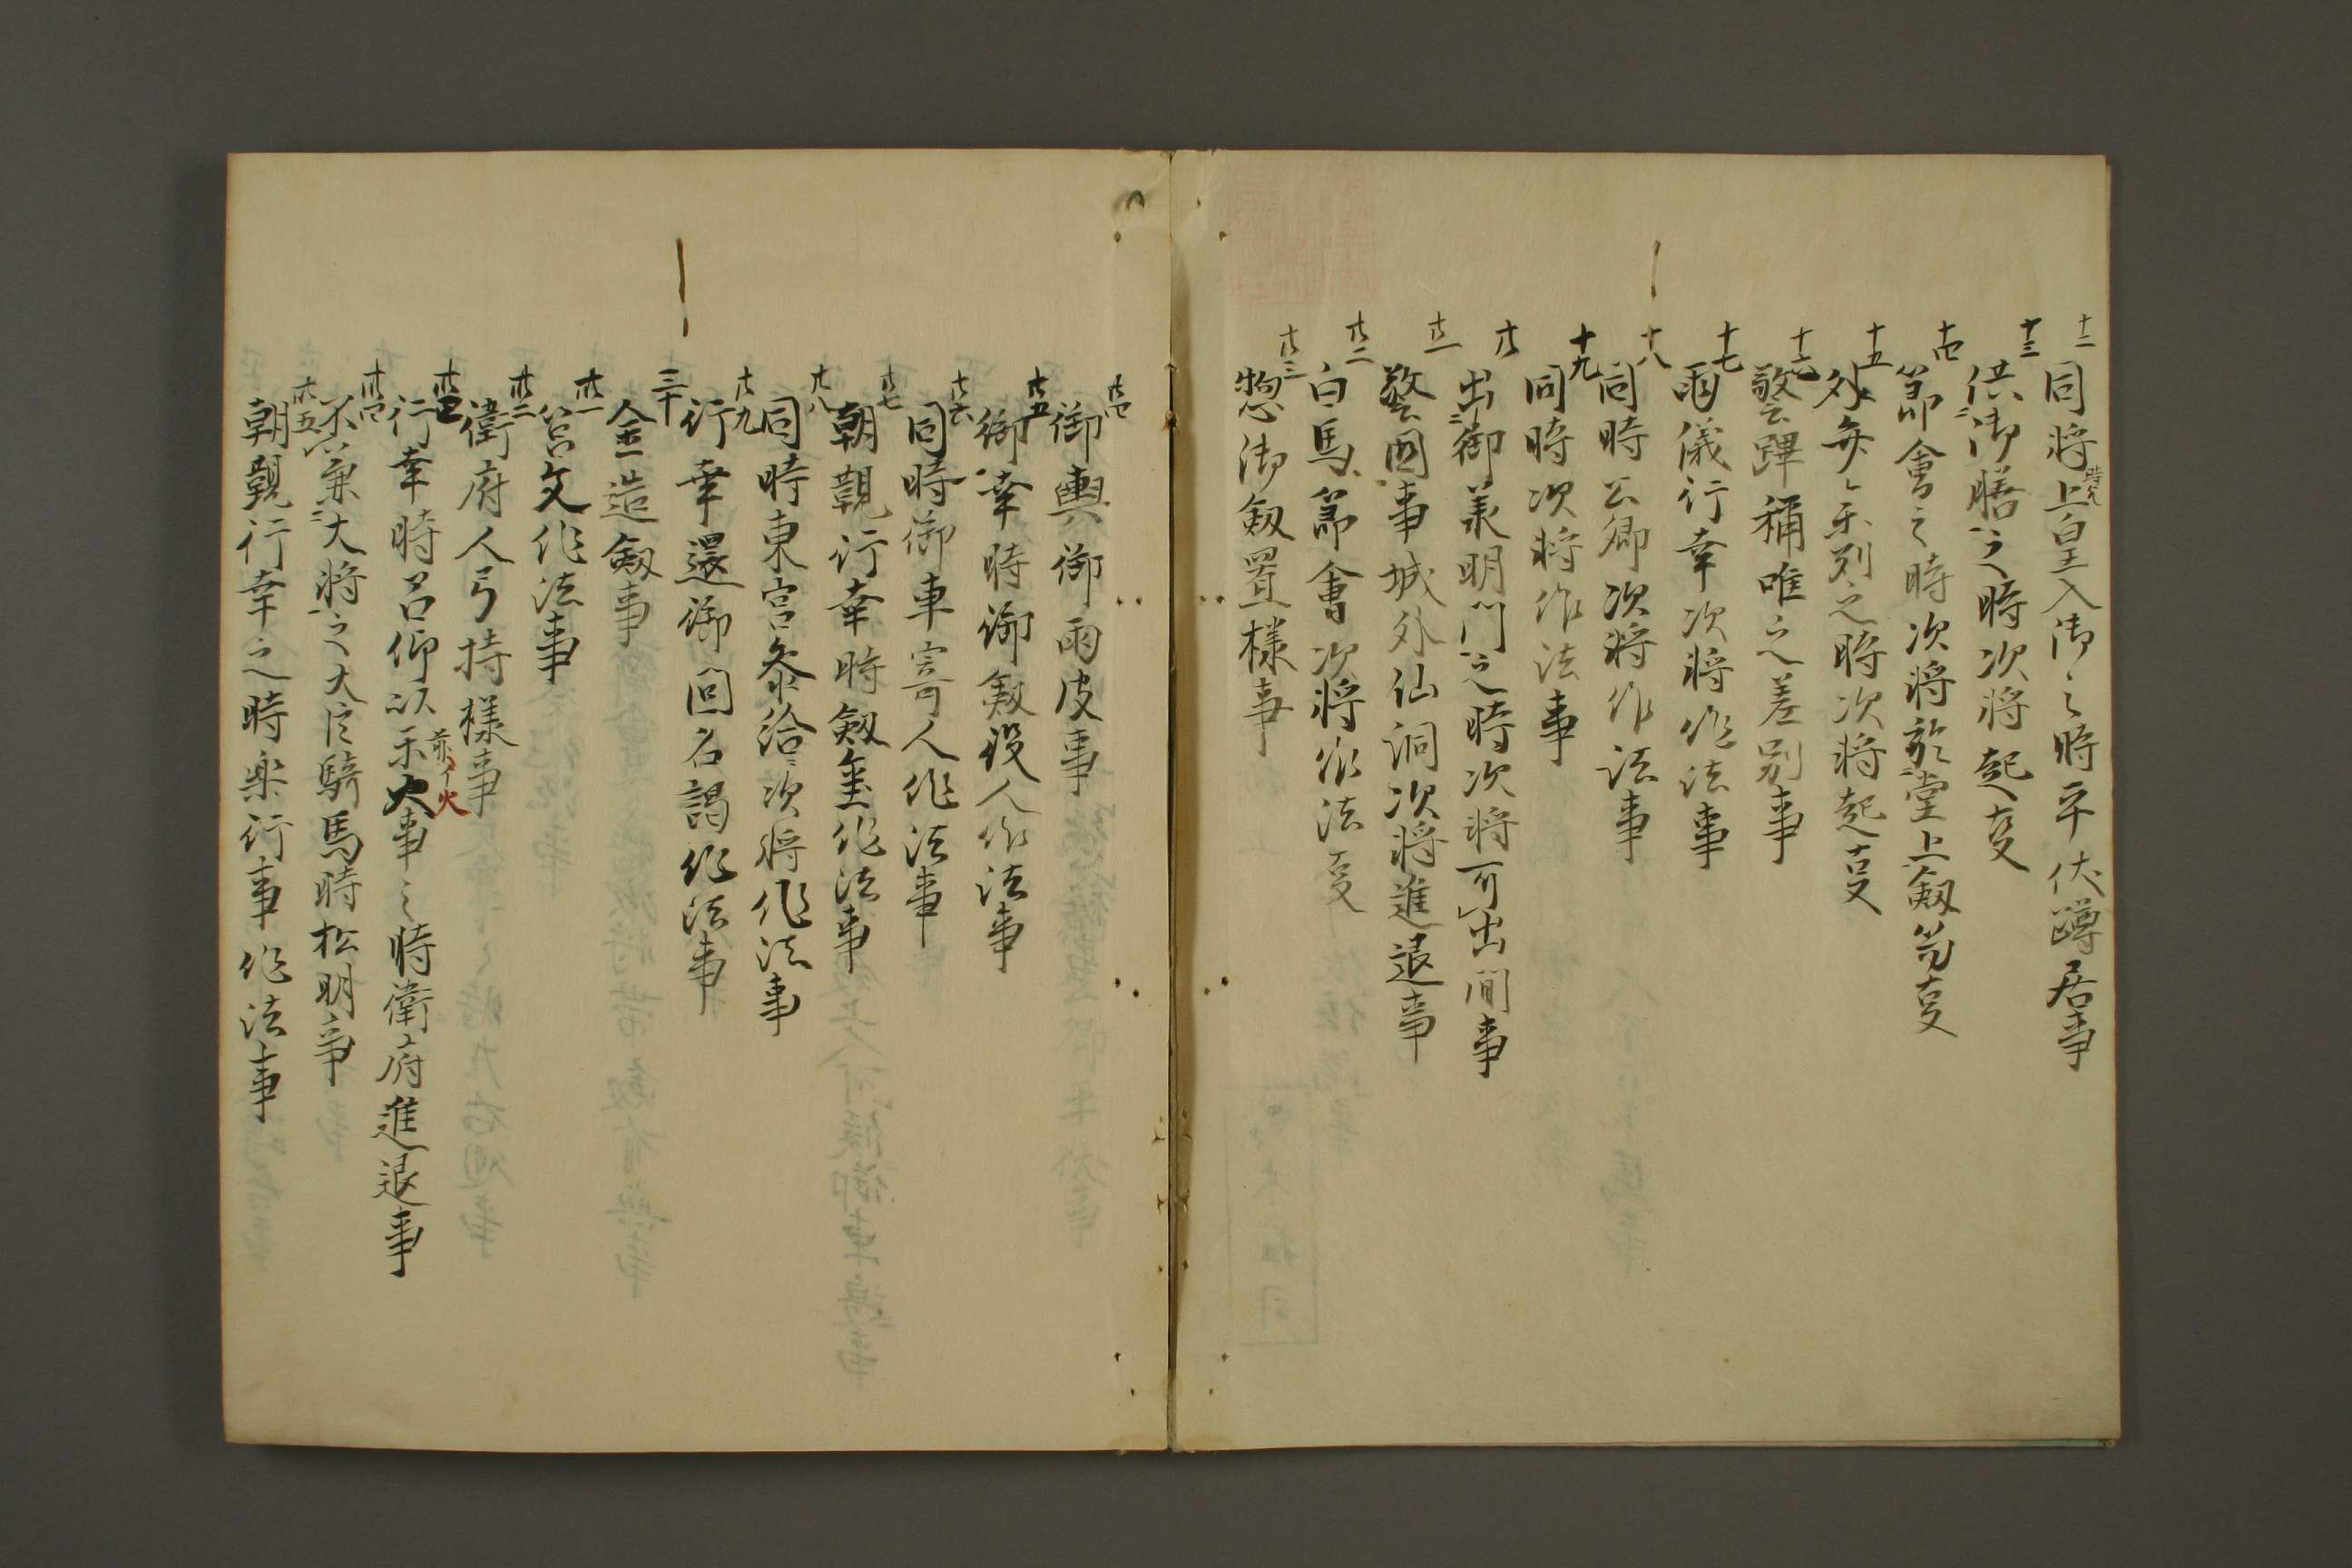 十二 同時上皇入御之時平伏蹲居事
十三 供御膳之時次将起事
十四 節會之時次将於堂上劔笏事
十五 外弁公卿列之時次将起事
十六 警蹕稱唯之差別事
十七 雨儀行幸次将作法事
十八 同時公卿次将作法事
十九 同時次将作法事
廿 出御羕明門之時次将可出間事
廿一 警固事城外仙洞次将進退事
廿二 白馬節會次将作法事
廿三 惣御劔置様事
廿四 御輿御雨皮事
廿五 御幸時御劔役人作法事
廿六 同時御車寄人作法事
廿七 朝覲行幸時劔璽作法事
廿八 同時東宮参給次将作法事
廿九 行幸還御回名謁作法事
三十 金造劔事
卅一 筥文作法事
卅二 衛府人弓持様事
卅三 行幸時召仰以下火事之時衛府進退事
卅四 不兼大将之大臣騎馬時松明事
卅五 朝覲行幸之時楽行事作法事